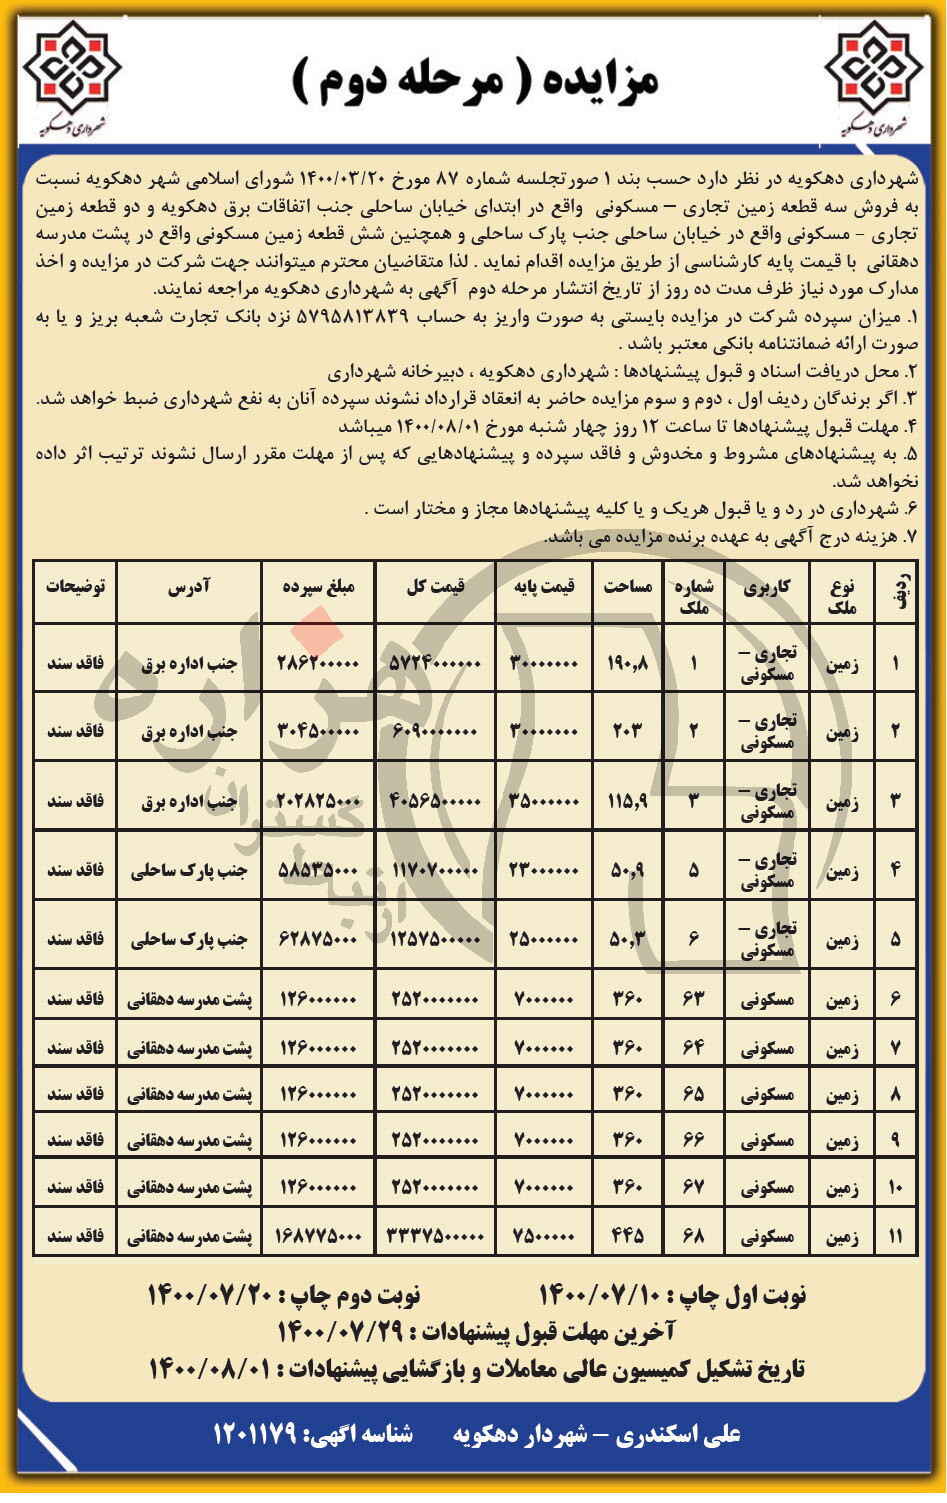 مزایده ( مرحله دوم )
شهرداری دهکویه
شهرداری دهکویه
شهرداری دهکویه در نظر دارد حسب بند ۱ صورتجلسه شماره ۸۷ مورخ ۱۴۰۰/۰۳/۲۰ شورای اسلامی شهر دهکویه نسبت
به فروش سه قطعه زمین تجاری – مسکونی واقع در ابتدای خیابان ساحلی جنب اتفاقات برق دهکویه و دو قطعه زمین
تجاری - مسکونی واقع در خیابان ساحلی جنب پارک ساحلی و همچنین شش قطعه زمین مسکونی واقع در پشت مدرسه
دهقانی با قیمت پایه کارشناسی از طریق مزایده اقدام نماید . لذا متقاضیان محترم میتوانند جهت شرکت در مزایده و اخذ
مدارک مورد نیاز ظرف مدت ده روز از تاریخ انتشار مرحله دوم آگهی به شهرداری دهکویه مراجعه نمایند.
۱. میزان سپرده شرکت در مزایده بایستی به صورت واریز به حساب ۵۷۹۵۸۱۳۸۳۹ نزد بانک تجارت شعبه بریز و یا به
صورت ارائه ضمانتنامه بانکی معتبر باشد .
۲. محل دریافت اسناد و قبول پیشنهادها : شهرداری دهکویه ، دبیرخانه شهرداری
۳. اگر برندگان ردیف اول ، دوم و سوم مزایده حاضر به انعقاد قرارداد نشوند سپرده آنان به نفع شهرداری ضبط خواهد شد.
۴. مهلت قبول پیشنهادها تا ساعت ۱۲ روز چهار شنبه مورخ ۱۴۰۰/۰۸/۰۱ میباشد
۵. به پیشنهادهای مشروط و مخدوش و فاقد سپرده و پیشنهادهایی که پس از مهلت مقرر ارسال نشوند ترتیب اثر داده
نخواهد شد.
۶. شهرداری در رد و یا قبول هریک و یا کلیه پیشنهادها مجاز و مختار است .
۷. هزینه درج آگهی به عهده برنده مزایده می باشد.
ردیف نوع ملک کاربری شماره ملک مساحت قیمت پایه قیمت کل مبلغ سپرده آدرس توضیحات
۱ زمین تجاری – مسکونی ۱ ۱۹۰,۸ ۳۰۰۰۰۰۰۰ ۵۷۲۴۰۰۰۰۰۰ ۲۸۶۲۰۰۰۰۰ جنب اداره برق فاقد سند
۲ زمین تجاری – مسکونی ۲ ۲۰۳ ۳۰۰۰۰۰۰۰ ۶۰۹۰۰۰۰۰۰۰ ۳۰۴۵۰۰۰۰۰ جنب اداره برق فاقد سند
۳ زمین تجاری – مسکونی ۳ ۱۱۵,۹ ۳۵۰۰۰۰۰۰ ۴۰۵۶۵۰۰۰۰۰ ۲۰۲۸۲۵۰۰۰ جنب اداره برق فاقد سند
۴ زمین تجاری – مسکونی ۵ ۵۰,۹ ۲۳۰۰۰۰۰۰ ۱۱۷۰۷۰۰۰۰۰ ۵۸۵۳۵۰۰۰ جنب پارک ساحلی فاقد سند
۵ زمین تجاری – مسکونی ۶ ۵۰,۳ ۲۵۰۰۰۰۰۰ ۱۲۵۷۵۰۰۰۰۰ ۶۲۸۷۵۰۰۰ جنب پارک ساحلی فاقد سند
۶ زمین مسکونی ۶۳ ۳۶۰ ۷۰۰۰۰۰۰ ۲۵۲۰۰۰۰۰۰۰ ۱۲۶۰۰۰۰۰۰ پشت مدرسه دهقانی فاقد سند
۷ زمین مسکونی ۶۴ ۳۶۰ ۷۰۰۰۰۰۰ ۲۵۲۰۰۰۰۰۰۰ ۱۲۶۰۰۰۰۰۰ پشت مدرسه دهقانی فاقد سند
۸ زمین مسکونی ۶۵ ۳۶۰ ۷۰۰۰۰۰۰ ۲۵۲۰۰۰۰۰۰۰ ۱۲۶۰۰۰۰۰۰ پشت مدرسه دهقانی فاقد سند
۹ زمین مسکونی ۶۶ ۳۶۰ ۷۰۰۰۰۰۰ ۲۵۲۰۰۰۰۰۰۰ ۱۲۶۰۰۰۰۰۰ پشت مدرسه دهقانی فاقد سند
۱۰ زمین مسکونی ۶۷ ۳۶۰ ۷۰۰۰۰۰۰ ۲۵۲۰۰۰۰۰۰۰ ۱۲۶۰۰۰۰۰۰ پشت مدرسه دهقانی فاقد سند
۱۱ زمین مسکونی ۶۸ ۴۴۵ ۷۵۰۰۰۰۰ ۳۳۳۷۵۰۰۰۰۰ ۱۶۸۷۷۵۰۰۰ پشت مدرسه دهقانی فاقد سند
هزاره
گستران
نوبت اول چاپ : ۱۴۰۰/۰۷/۱۰ نوبت دوم چاپ : ۱۴۰۰/۰۷/۲۰
آخرین مهلت قبول پیشنهادات : ۱۴۰۰/۰۷/۲۹
تاریخ تشکیل کمیسیون عالی معاملات و بازگشایی پیشنهادات : ۱۴۰۰/۰۸/۰۱
علی اسکندری – شهردار دهکویه شناسه اگهی: ۱۲۰۱۱۷۹